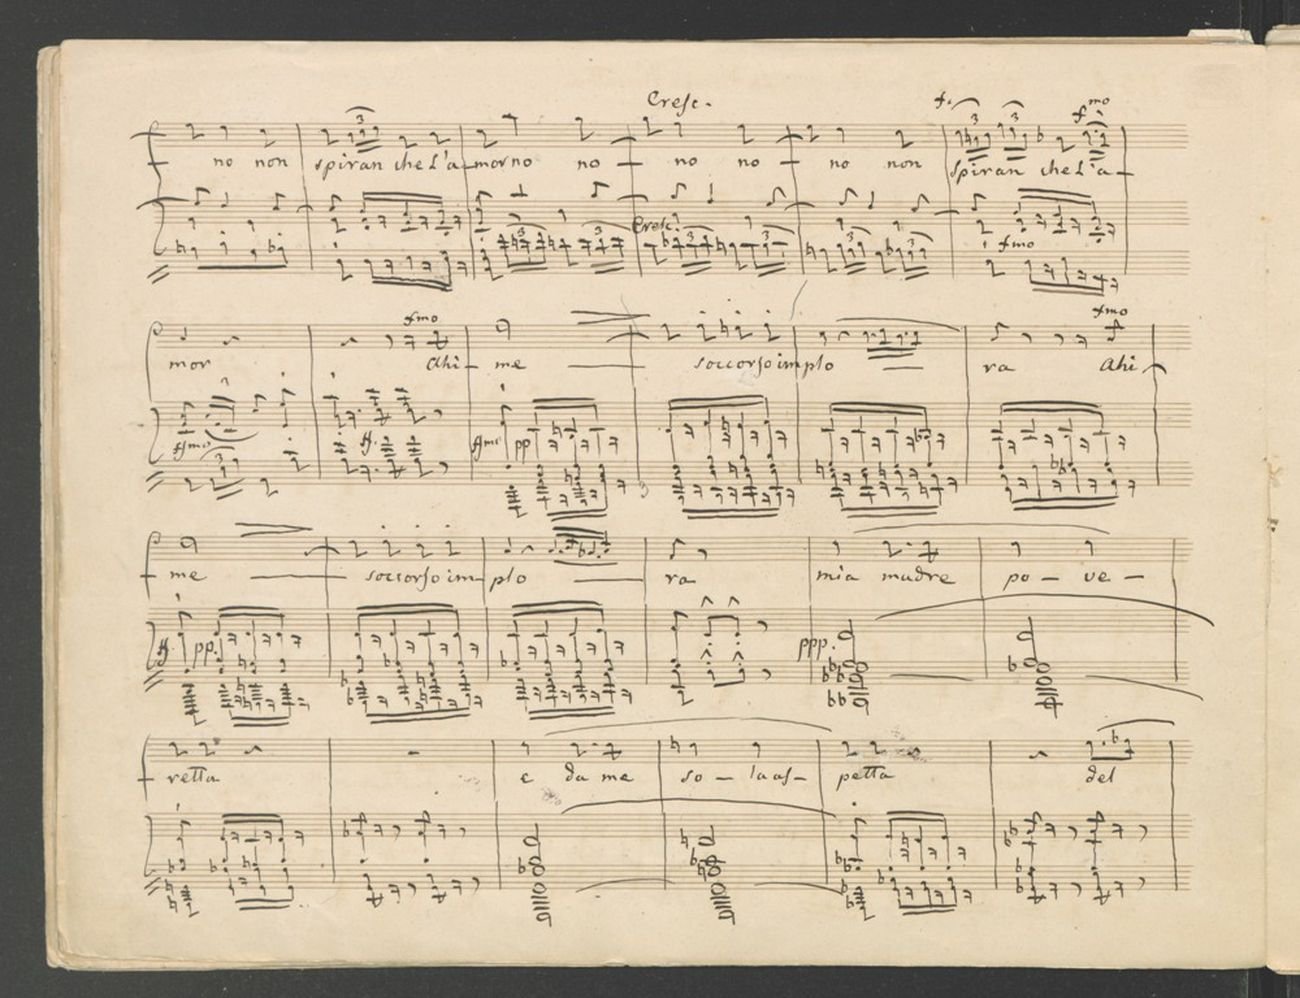 Cresc.
f. fmo
no non spiran che L'a-mor no no no no no non spiran che L'a-
Cresc.
fmo
fmo fmo
mor Ahi- me soccorso implo ra Ahi
ffmo ff. ffmo pp
me soccorso im- plo ra mia madre po- ve-
ff. pp. ppp.
retta e da me so- la as- petta del